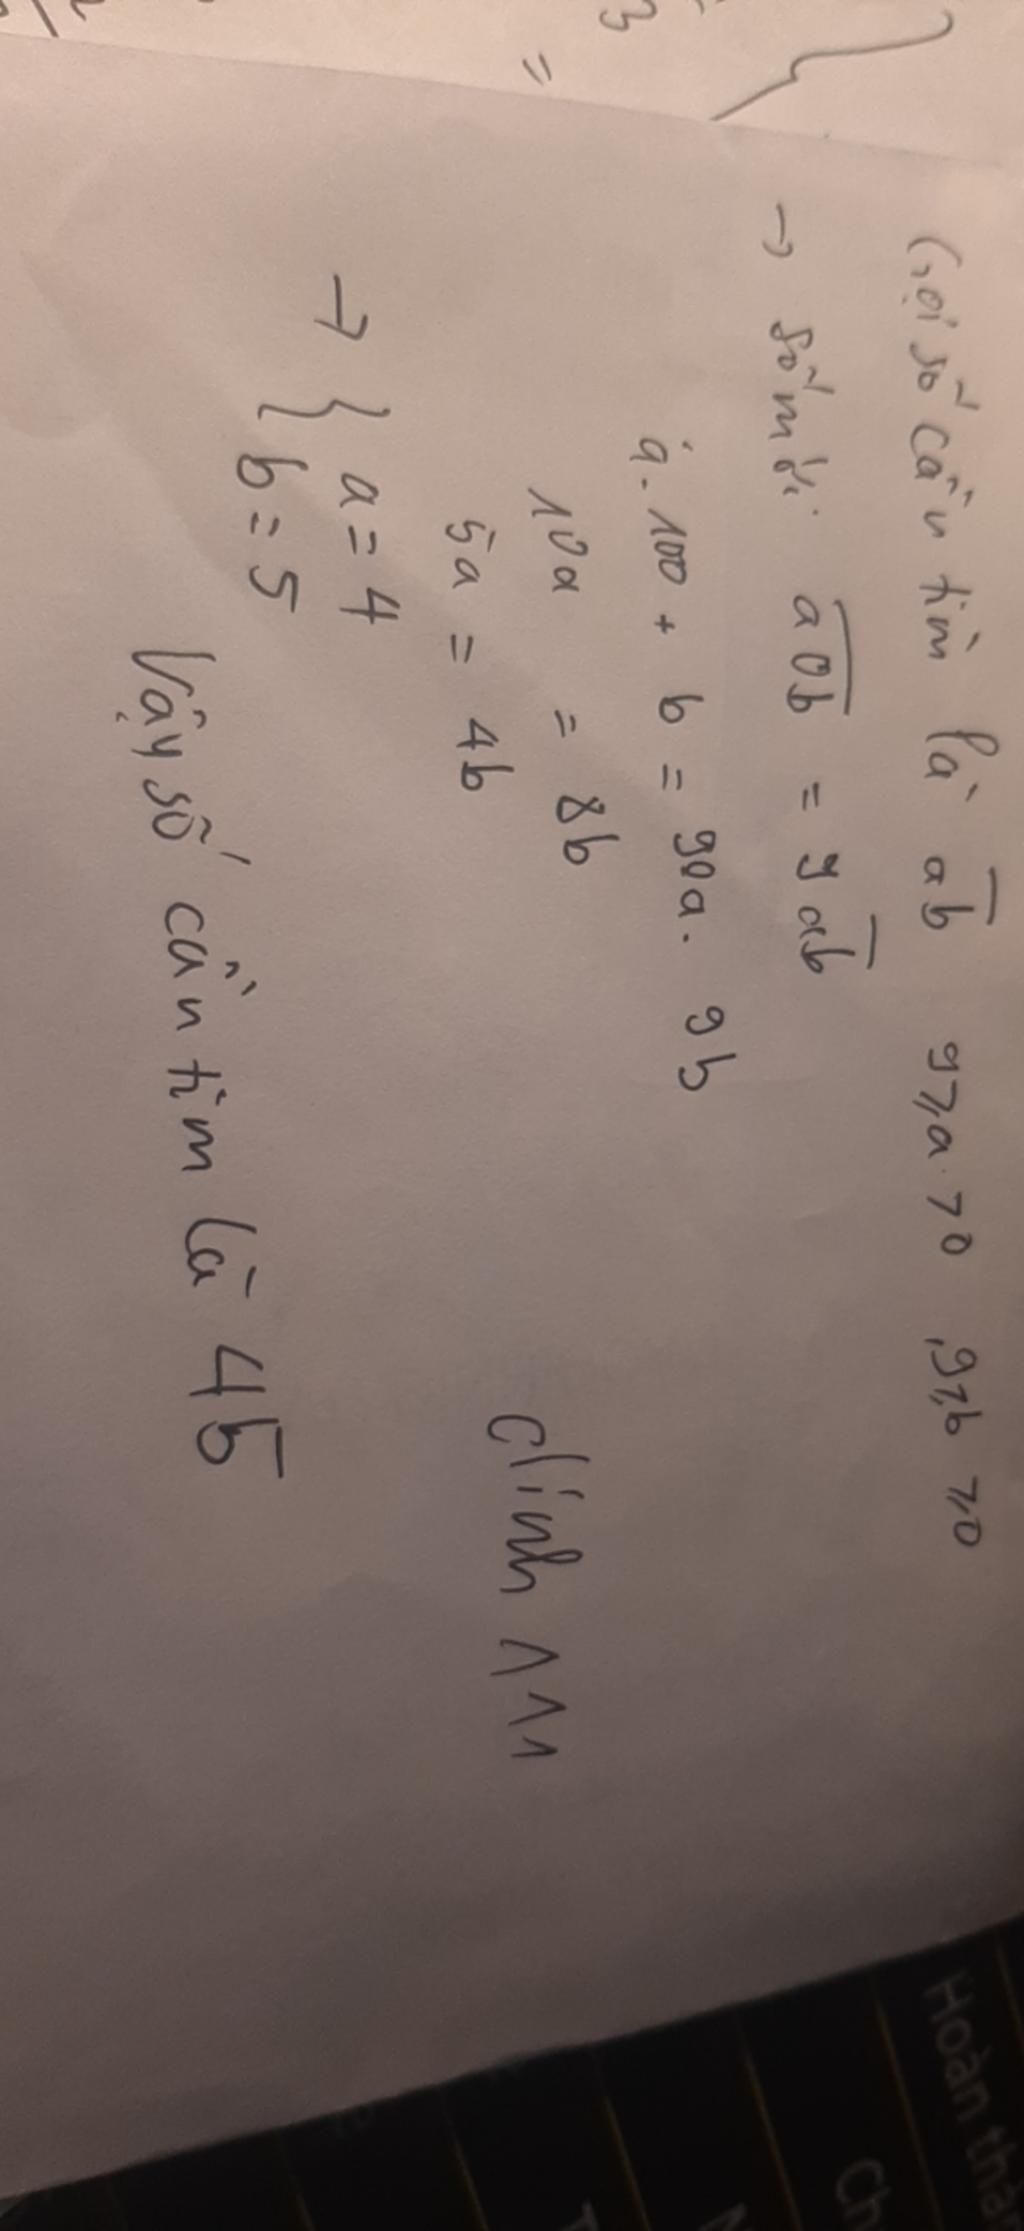 3
=
Gọi số cần tìm là ab 9≥a>0, 9≥b≥0
→ số mới a0b = 9ab
a.100 + b = 90a. 9b
10a = 8b
5a = 4b
→ { a = 4
b = 5
clinh 111
Vậy số cần tìm là 45
Hoàn thàn
Ch